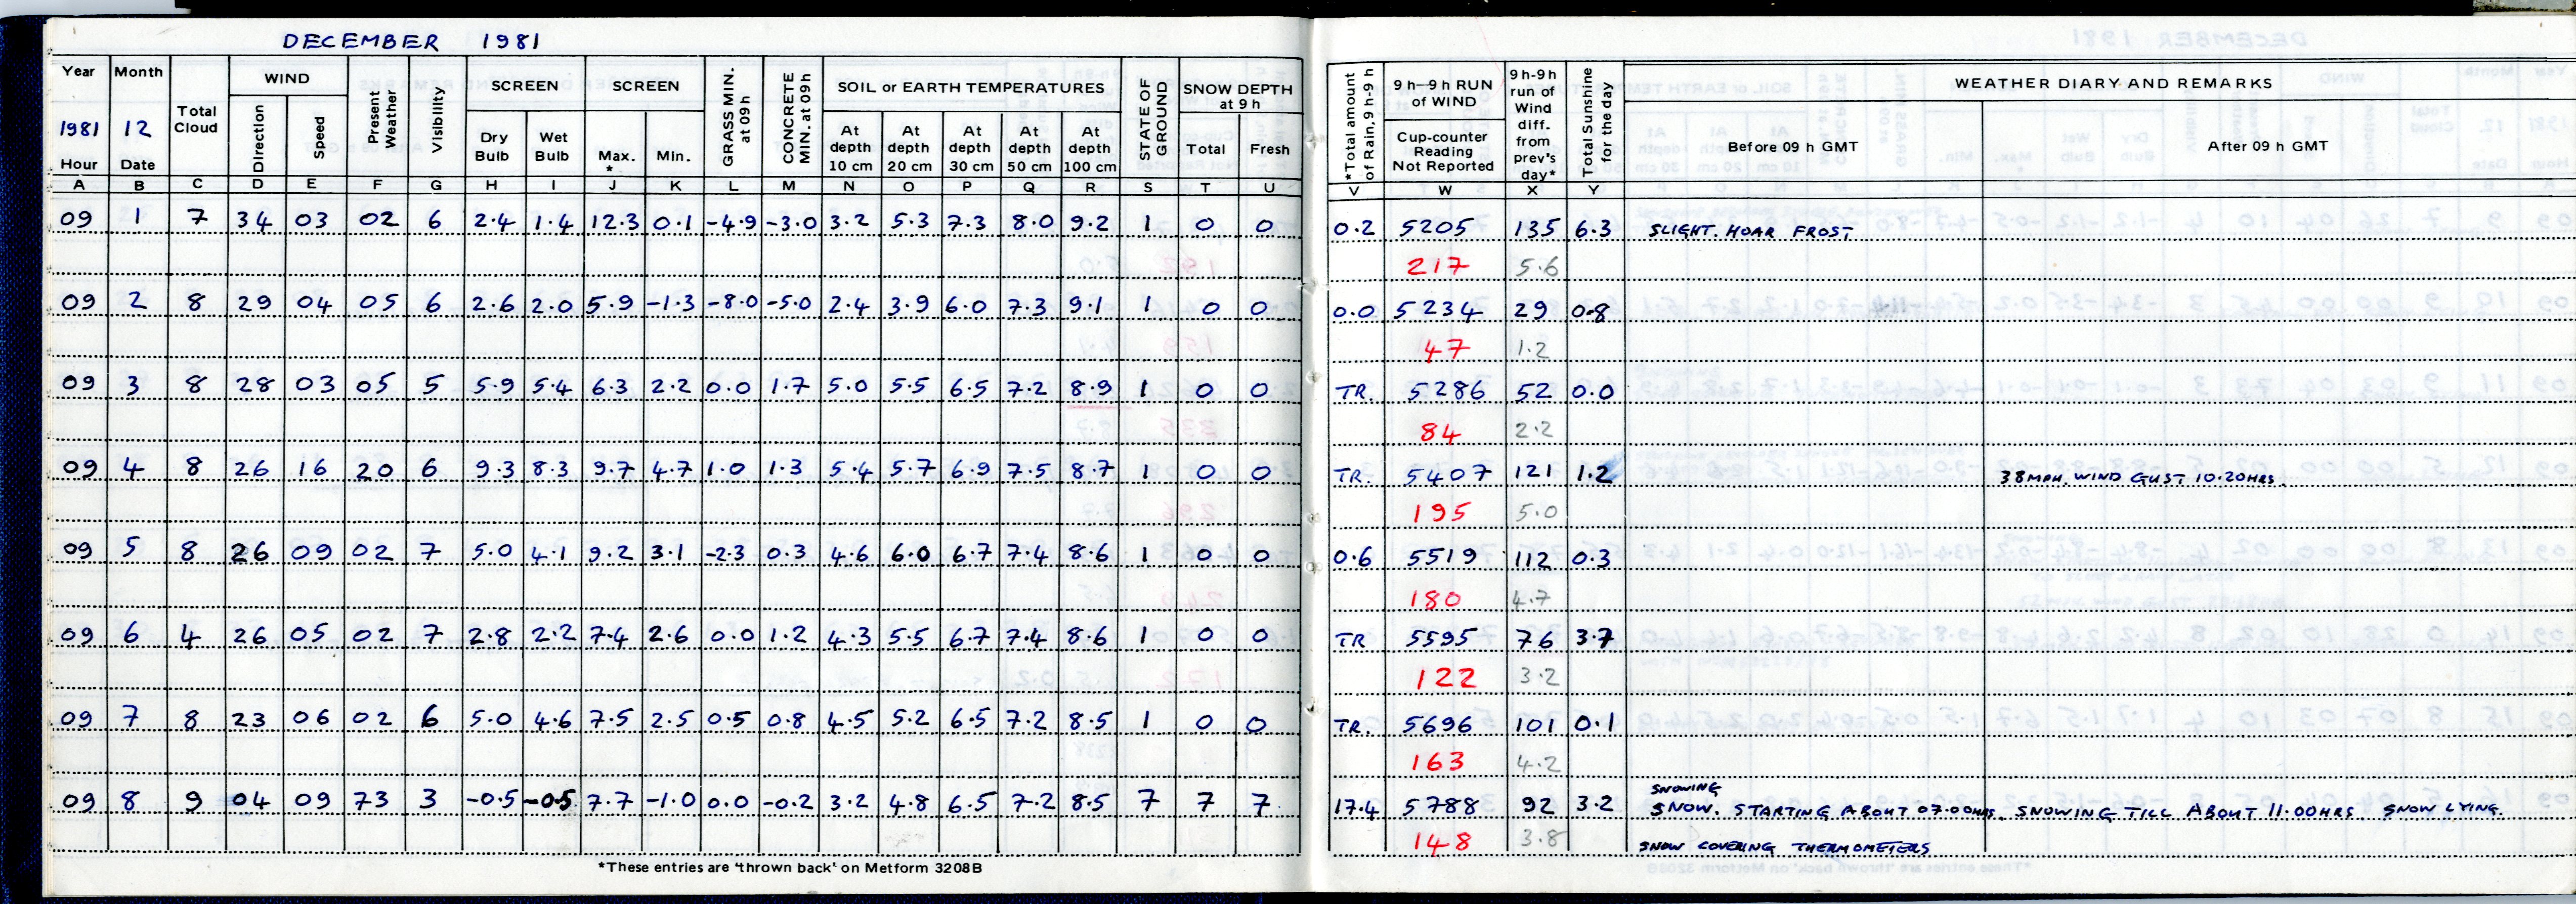 DECEMBER 1981
Year Month Total Cloud WIND Present Weather Visibility SCREEN SCREEN GRASS MIN. at 09h CONCRETE MIN. at 09h SOIL or EARTH TEMPERATURES STATE OF GROUND SNOW DEPTH at 9 h *Total amount of Rain, 9 h-9 h 9 h–9 h RUN of WIND 9 h-9 h run of Wind diff. from prev's day* Total Sunshine for the day WEATHER DIARY AND REMARKS
1981 12 Direction Speed Dry Bulb Wet Bulb Max. * Min. At depth 10 cm At depth 20 cm At depth 30 cm At depth 50 cm At depth 100 cm Total Fresh Cup-counter Reading Not Reported Before 09 h GMT After 09 h GMT
Hour Date
A B C D E F G H I J K L M N O P Q R S T U V W X Y
09 1 7 34 03 02 6 2.4 1.4 12.3 0.1 -4.9 -3.0 3.2 5.3 7.3 8.0 9.2 1 0 0 0.2 5205 135 6.3 SLIGHT. HOAR FROST
217 5.6
09 2 8 29 04 05 6 2.6 2.0 5.9 -1.3 -8.0 -5.0 2.4 3.9 6.0 7.3 9.1 1 0 0 0.0 5234 29 0.8
47 1.2
09 3 8 28 03 05 5 5.9 5.4 6.3 2.2 0.0 1.7 5.0 5.5 6.5 7.2 8.9 1 0 0 TR. 5286 52 0.0
84 2.2
09 4 8 26 16 20 6 9.3 8.3 9.7 4.7 1.0 1.3 5.4 5.7 6.9 7.5 8.7 1 0 0 TR. 5407 121 1.2 38MPH. WIND GUST 10.20HRS.
195 5.0
09 5 8 26 09 02 7 5.0 4.1 9.2 3.1 -2.3 0.3 4.6 6.0 6.7 7.4 8.6 1 0 0 0.6 5519 112 0.3
180 4.7
09 6 4 26 05 02 7 2.8 2.2 7.4 2.6 0.0 1.2 4.3 5.5 6.7 7.4 8.6 1 0 0 TR 5595 76 3.7
122 3.2
09 7 8 23 06 02 6 5.0 4.6 7.5 2.5 0.5 0.8 4.5 5.2 6.5 7.2 8.5 1 0 0 TR. 5696 101 0.1
163 4.2
SNOWING
09 8 9 04 09 73 3 -0.5 -0.5 7.7 -1.0 0.0 -0.2 3.2 4.8 6.5 7.2 8.5 7 7 7 17.4 5788 92 3.2 SNOW. STARTING ABOUT 07.00HRS. SNOWING TILL ABOUT 11.00HRS. SNOW LYING.
148 3.8 SNOW COVERING THERMOMETERS
*These entries are 'thrown back' on Metform 3208B